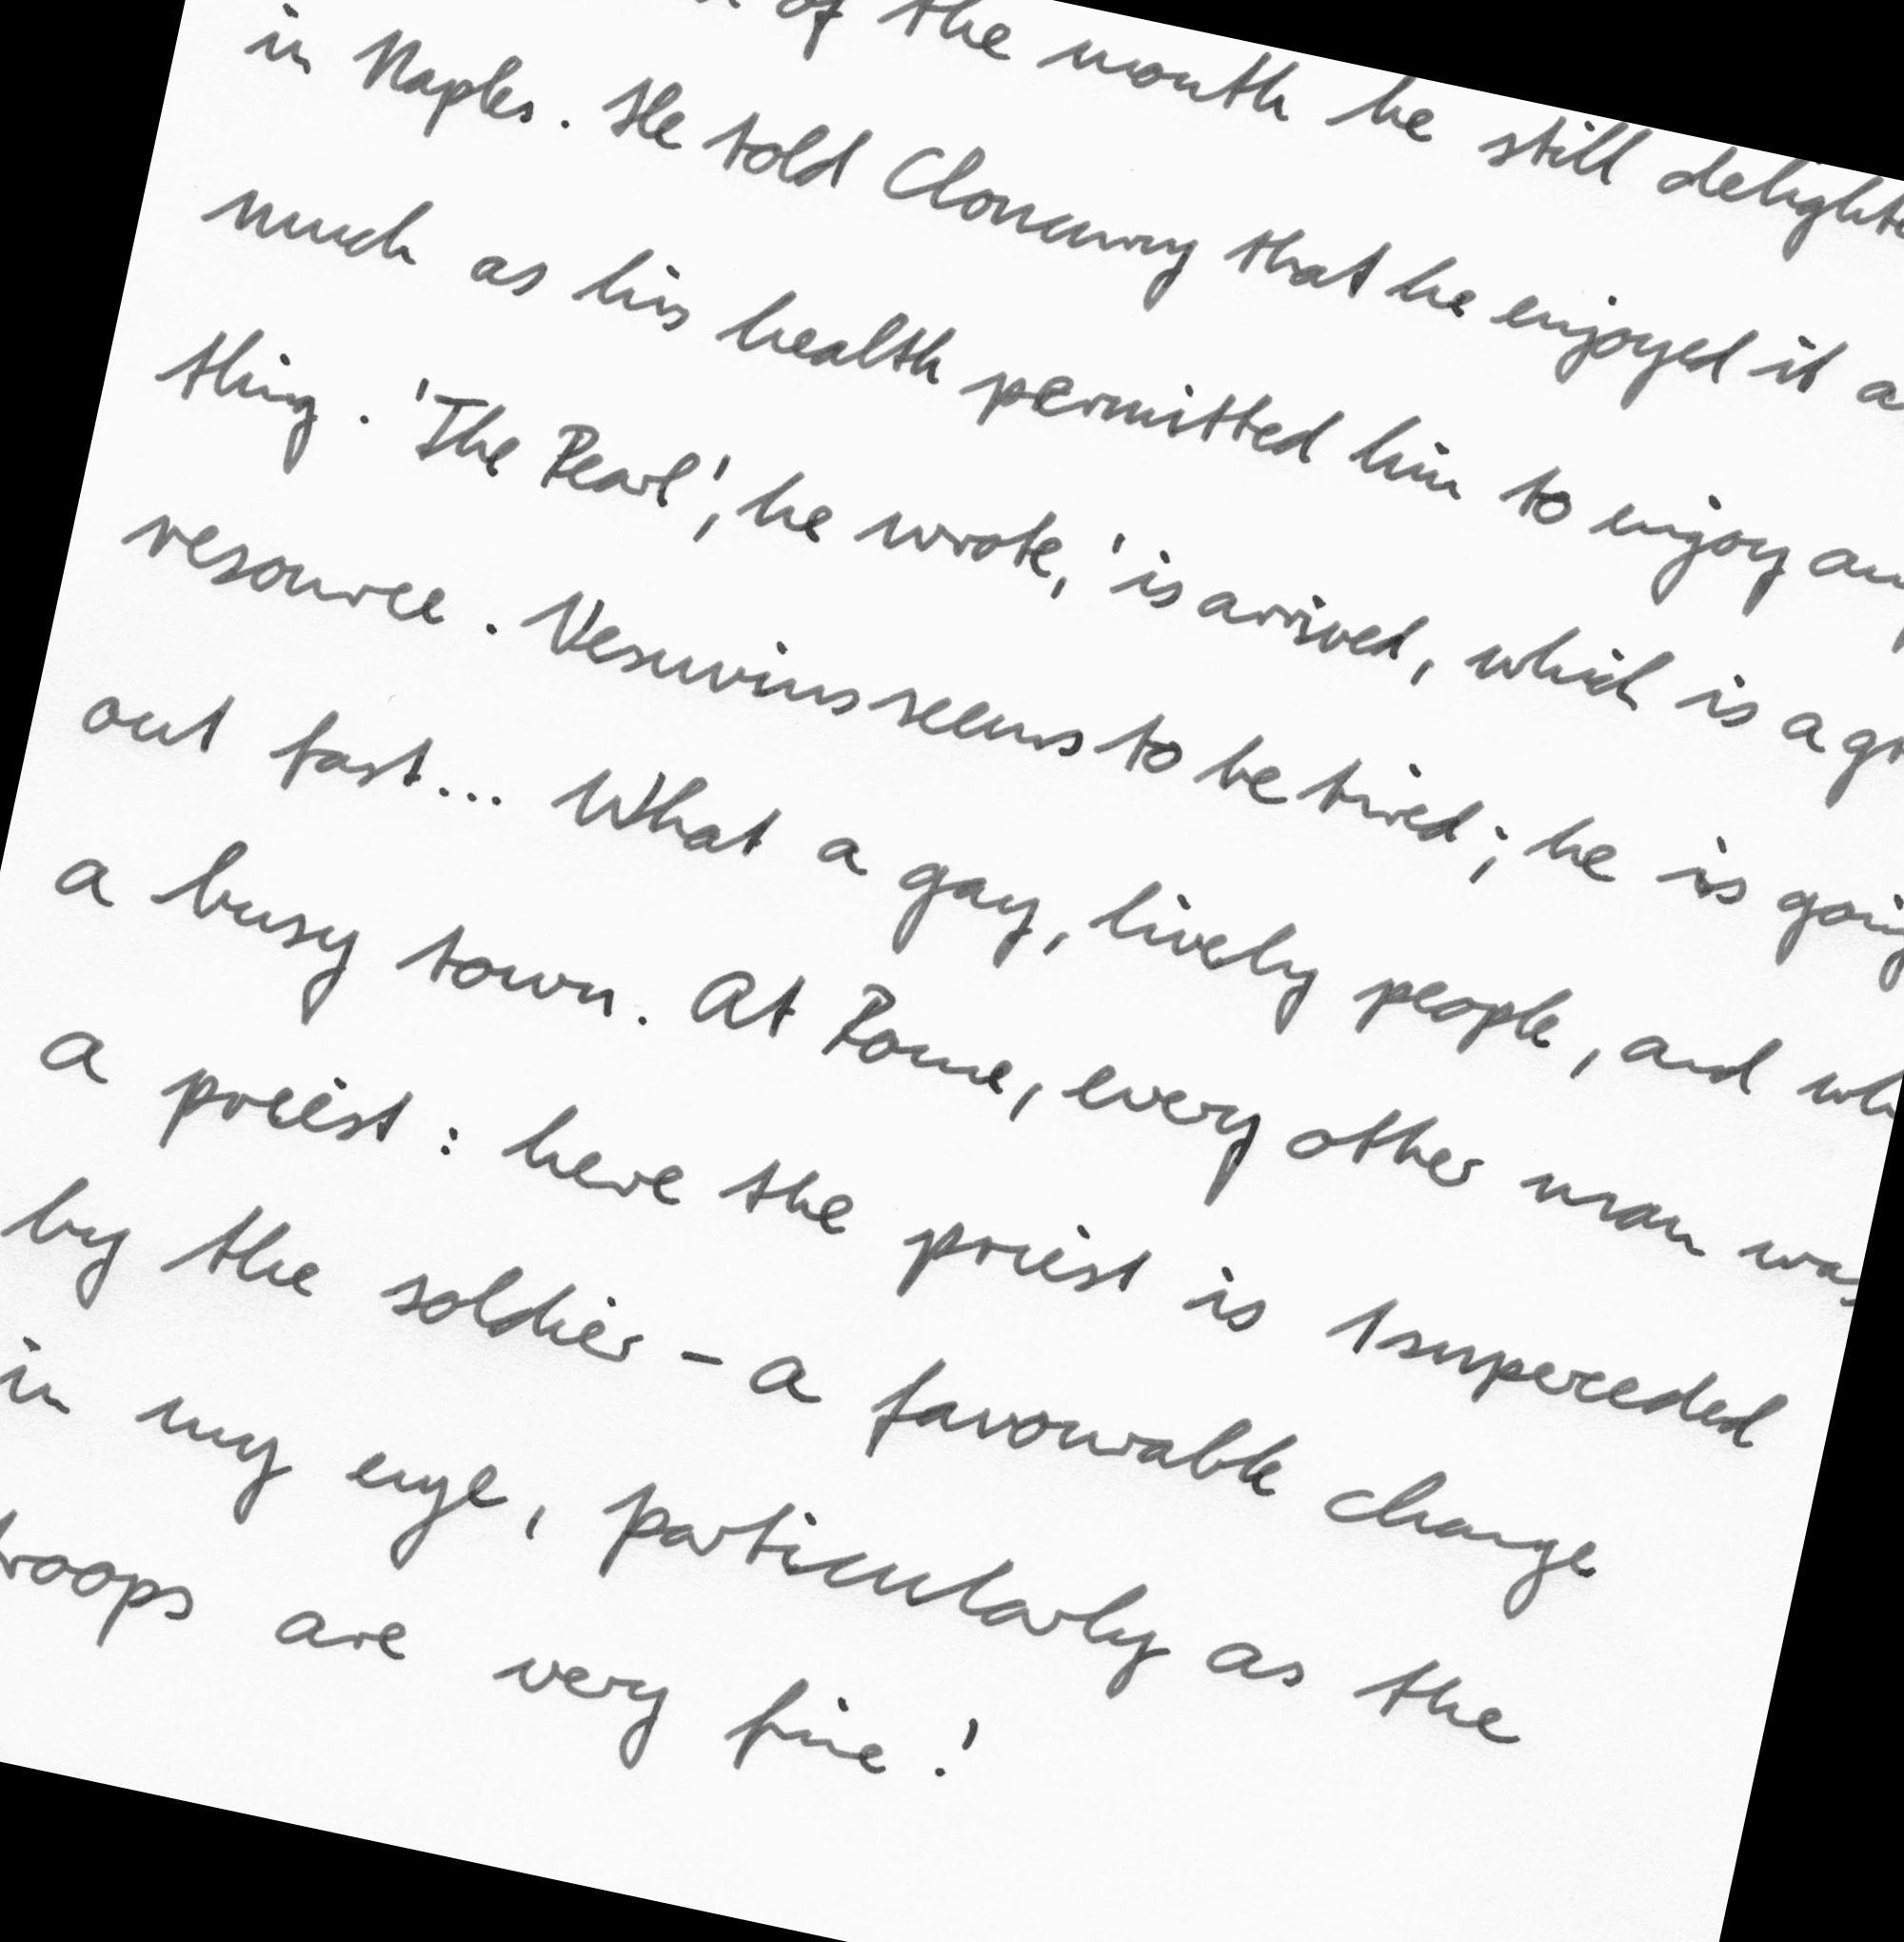 of the month he still
in Naples. He told Cloncurry that he enjoyed it
much as his health permitted him to enjoy
thing. 'The Pearl', he wrote, 'is arrived, which is a
resource. Vesuvius seems to be tired; he is
out fast... What a gay, lively people, and
a busy town. At Rome, every other man was
a priest: here the priest is superceded
by the soldier - a favourable change
in my eye, particularly as the
are very fine.'